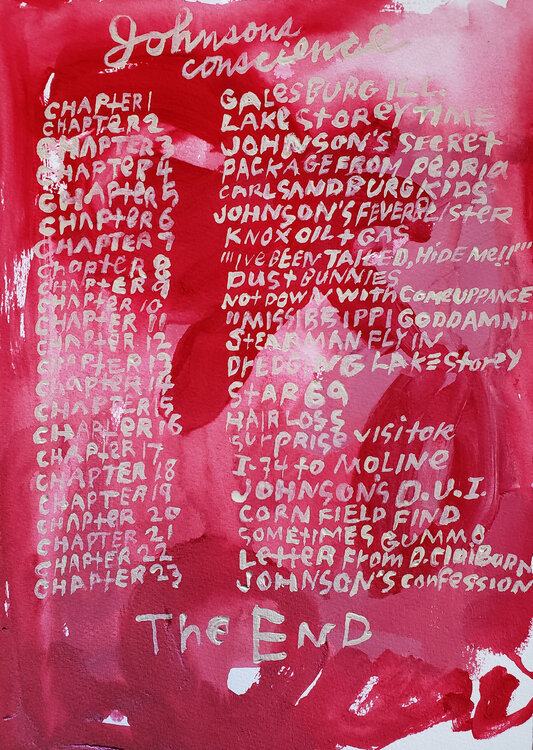 Johnsons
conscience
CHAPTER 1 GALESBURG ILL.
CHAPTER 2 LAKE STOREY TIME
CHAPTER 3 JOHNSON'S SECRET
CHAPTER 4 PACKAGE FROM PEORIA
CHAPTER 5 CARL SANDBURG KIDS
CHAPTER 6 JOHNSON'S FEVER BLISTER
CHAPTER 7 KNOX OIL + GAS
Chapter 8 "I'VE BEEN TAILED, HIDE ME!!"
CHAPTER 9 DUST BUNNIES
CHAPTER 10 NOT DOWN WITH COMEUPPANCE
CHAPTER 11 "MISSISSIPPI GODDAMN"
CHAPTER 12 STEARMAN FLY IN
CHAPTER 13 DREDGING LAKE STOREY
CHAPTER 14 STAR 69
CHAPTER 15 HAIR LOSS
CHAPTER 16 SURPRISE VISITOR
CHAPTER 17 I-74 TO MOLINE
CHAPTER 18 JOHNSON'S D.U.I.
CHAPTER 19 CORN FIELD FIND
CHAPTER 20 SOMETIMES GUMMO
CHAPTER 21 LETTER FROM D. CLAIBARN
CHAPTER 22 JOHNSON'S CONFESSION
CHAPTER 23
The END